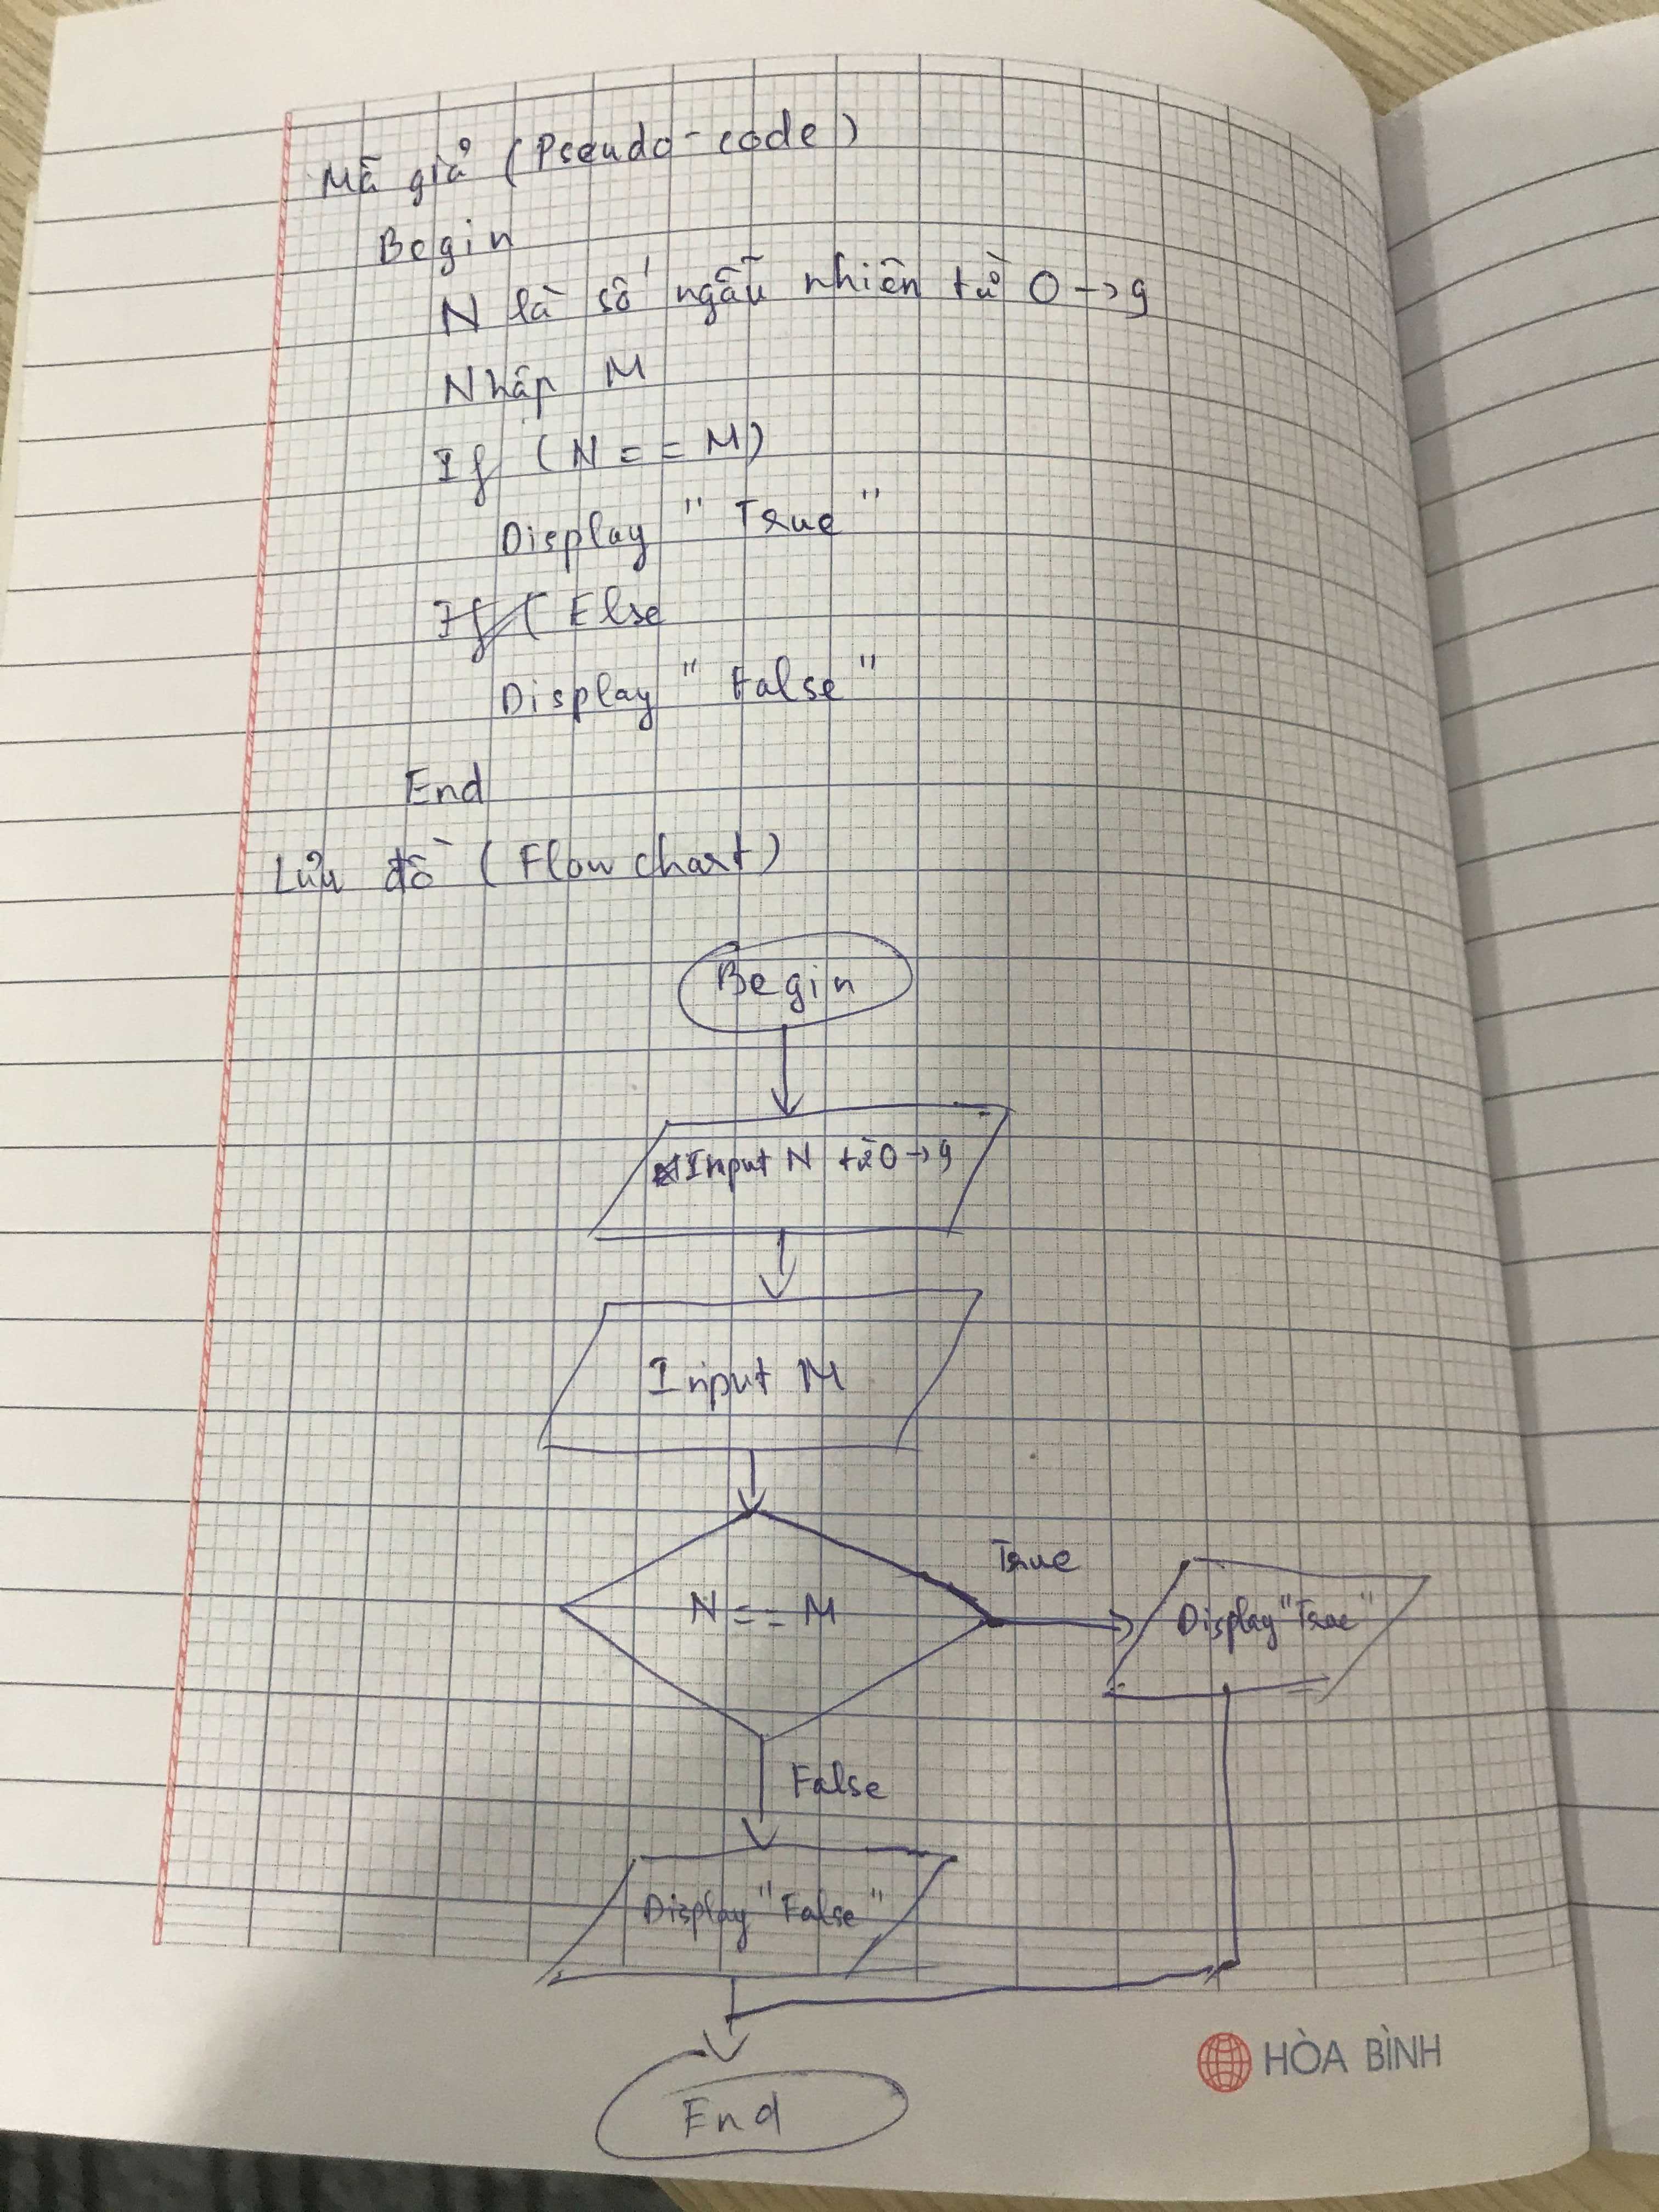 Mã giả (Pseudo-code)
Begin
N là số ngẫu nhiên từ 0 → 9
Nhập M
If (N == M)
Display "True"
If ( Else
Display "False"
End
Lưu đồ (Flow chart)
Begin
Input N từ 0 → 9
Input M
N == M
True
Display "True"
False
Display "False"
End
HÒA BÌNH